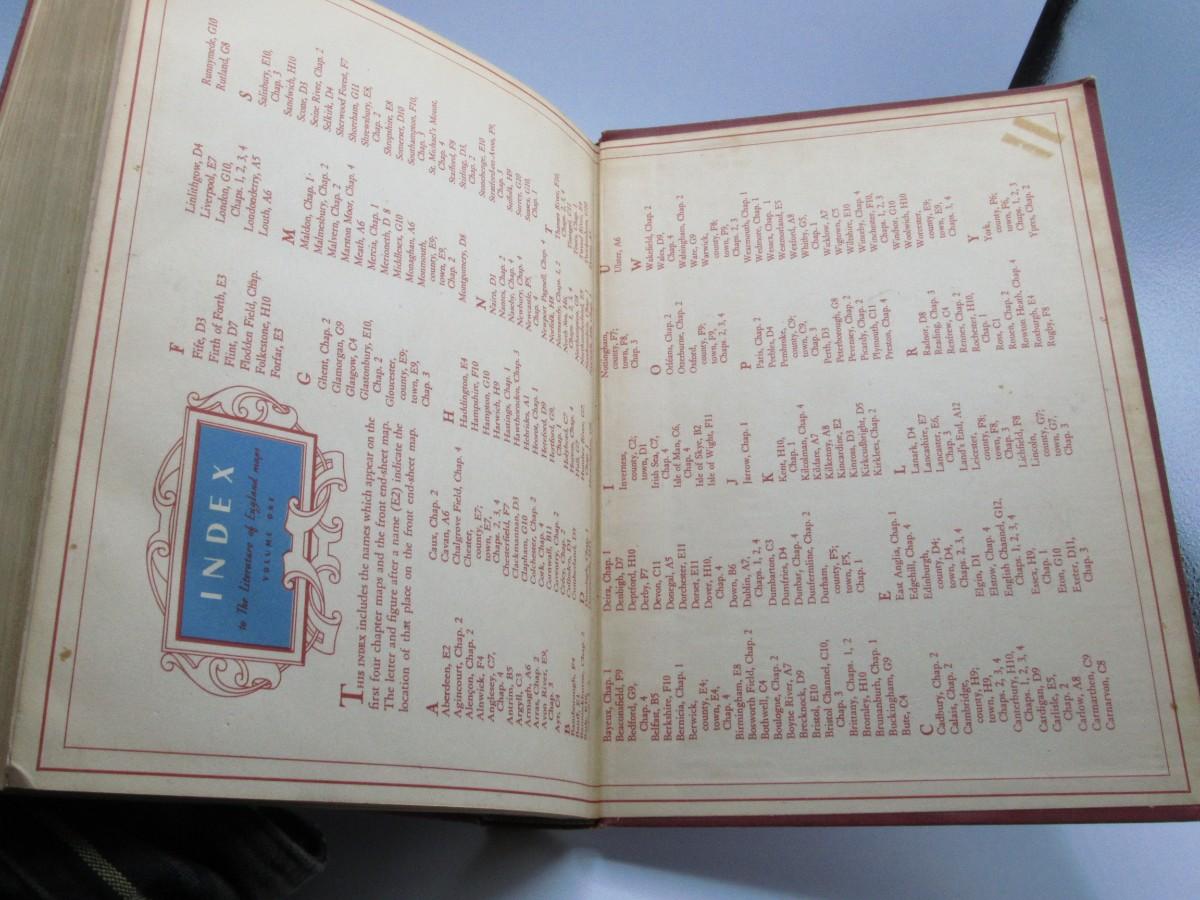 INDEX
to The Literature of England maps
VOLUME ONE
THIS INDEX includes the names which appear on the
first four chapter maps and the front end-sheet map.
The letter and figure after a name (E2) indicate the
location of that place on the front end-sheet map.
A
Aberdeen, E2
Agincourt, Chap. 2
Alençon, Chap. 2
Alnwick, F4
Anglesey, C7,
Chap. 4
Antrim, B5
Argyll, C3
Armagh, A6
Arras, Chap. 2
Avon River, E9,
Chap. 3
Ayr, C4
B
Bayeux, Chap. 1
Beaconsfield, F9
Bedford, G9,
Chap. 4
Belfast, B5
Berkshire, F10
Bernicia, Chap. 1
Berwick,
county, E4;
town, E4,
Chap. 4
Birmingham, E8
Bosworth Field, Chap. 2
Bothwell, C4
Boulogne, Chap. 2
Boyne River, A7
Brecknock, D9
Bristol, E10
Bristol Channel, C10,
Chap. 3
Brittany, Chaps. 1, 2
Bromley, H10
Brunanburh, Chap. 1
Buckingham, G9
Bute, C4
C
Cadbury, Chap. 2
Calais, Chap. 2
Cambridge,
county, H9;
town, H9,
Chaps. 2, 3, 4
Canterbury, H10,
Chaps. 2, 3, 4
Cardigan, D9
Carlisle, E5,
Chap. 2
Carlow, A8
Carmarthen, C9
Carnarvon, C8
Caux, Chap. 2
Cavan, A6
Chalgrove Field, Chap. 4
Chester,
county, E7;
town, E7,
Chaps. 2, 3, 4
Chesterfield, F7
Clackmannan, D3
Clapham, G10
Colchester, Chap. 2
Cork, Chap. 4
Cornwall, B11
D
Deira, Chap. 1
Denbigh, D7
Deptford, H10
Derby, F8
Devon, C11
Donegal, A5
Dorchester, E11
Dorset, E11
Dover, H10,
Chap. 4
Down, B6
Dublin, A7,
Chaps. 1, 2, 4
Dumbarton, C3
Dumfries, D4
Dunbar, Chap. 4
Dunfermline, Chap. 2
Durham,
county, F5;
town, F5,
Chap. 1
E
East Anglia, Chap. 1
Edgehill, Chap. 4
Edinburgh,
county, D4;
town, D4,
Chaps. 2, 3, 4
Elgin, D1
Elstow, Chap. 4
English Channel, G12,
Chaps. 1, 2, 3, 4
Essex, H9,
Chap. 1
Eton, G10
Exeter, D11,
Chap. 3
F
Fife, D3
Firth of Forth, E3
Flint, D7
Flodden Field, Chap.
Folkestone, H10
Forfar, E3
G
Ghent, Chap. 2
Glamorgan, G9
Glasgow, C4
Glastonbury, E10,
Chap. 2
Gloucester,
county, E9;
town, E9,
Chap. 3
H
Haddington, E4
Hampshire, F10
Hampton, G10
Harwich, H9
Hastings, Chap. 1
Hawthornden, Chap. 3
Hebrides, A1
Heorot, Chap. 1
Hereford, D9
Hertford, G9,
I
Inverness,
county, C2;
town, D1
Irish Sea, C7,
Chap. 4
Isle of Man, C6,
Chap. 4
Isle of Skye, B2
Isle of Wight, F11
J
Jarrow, Chap. 1
K
Kent, H10,
Chap. 1
Kilcolman, Chap. 4
Kildare, A7
Kilkenny, A8
Kincardine, E2
Kinross, D3
Kirkcudbright, D5
Kirklees, Chap. 2
L
Lanark, D4
Lancashire, E7
Lancaster, E6,
Chap. 3
Land's End, A12
Leicester,
county, F8;
town, F8,
Chap. 3
Lichfield, F8
Lincoln,
county, G7;
town, G7,
Chap. 3
Linlithgow, D4
Liverpool, E7
London, G10,
Chaps. 1, 2, 3, 4
Londonderry, A5
Louth, A6
M
Maldon, Chap. 1
Malmesbury, Chap. 2
Malvern, Chap. 2
Marston Moor, Chap. 4
Meath, A6
Mercia, Chap. 1
Merioneth, D 8
Middlesex, G10
Monaghan, A6
Monmouth,
county, E9;
town, E9,
Chap. 2
Montgomery, D8
N
Nairn, D1
Nantes, Chap. 2
Naseby, Chap. 4
Newbury, Chap. 4
Newcastle, F5,
Chap. 4
Newport Pagnell, Chap. 4
Norfolk, H8
Nottingham,
county, F7;
town, F8,
Chap. 3
O
Orléans, Chap. 2
Otterburne, Chap. 2
Oxford,
county, F9;
town, F9,
Chaps. 2, 3, 4
P
Paris, Chap. 2
Peebles, D4
Pembroke,
county, C9;
town, C9,
Chap. 3
Perth, D3
Peterborough, G8
Pevensey, Chap. 2
Picardy, Chap. 2
Plymouth, C11
Preston, Chap. 4
R
Radnor, D8
Reading, Chap. 3
Renfrew, C4
Rennes, Chap. 2
Rochester, H10,
Chap. 1
Ross, C1
Rouen, Chap. 2
Rowton Heath, Chap. 4
Roxburgh, E4
Rugby, F8
Runnymede, G10
Rutland, G8
S
Salisbury, E10,
Chap. 3
Sandwich, H10
Scone, D3
Seine River, Chap. 2
Selkirk, D4
Sherwood Forest, F7
Shoreham, G11
Shrewsbury, E8,
Chap. 2
Shropshire, E8
Somerset, D10
Southampton, F10,
Chap. 3
St. Michael's Mount,
Chap. 4
Stafford, F8
Stirling, D3,
Chap. 2
Stonehenge, E10
Stratford-on-Avon, F9,
Chap. 3
Suffolk, H9
Surrey, G10
Sussex, G10,
Chap. 1
T
U
Ulster, A6
W
Wakefield, Chap. 2
Wales, D9,
Chap. 4
Walsingham, Chap. 2
Ware, G9
Warwick,
county, F8;
town, F9,
Chaps. 2, 3
Wearmouth, Chap. 1
Wedmore, Chap. 1
Wessex, Chap. 1
Westmorland, E5
Wexford, A8
Whitby, G5,
Chap. 1
Wicklow, A7
Wigtown, C5
Wiltshire, E10
Winceby, Chap. 4
Winchester, F10,
Chaps. 1, 2, 3
Windsor, G10
Woolwich, H10
Worcester,
county, E9;
town, E9,
Chaps. 3, 4
Y
York,
county, F6;
town, F6,
Chaps. 1, 2, 3
Ypres, Chap. 2